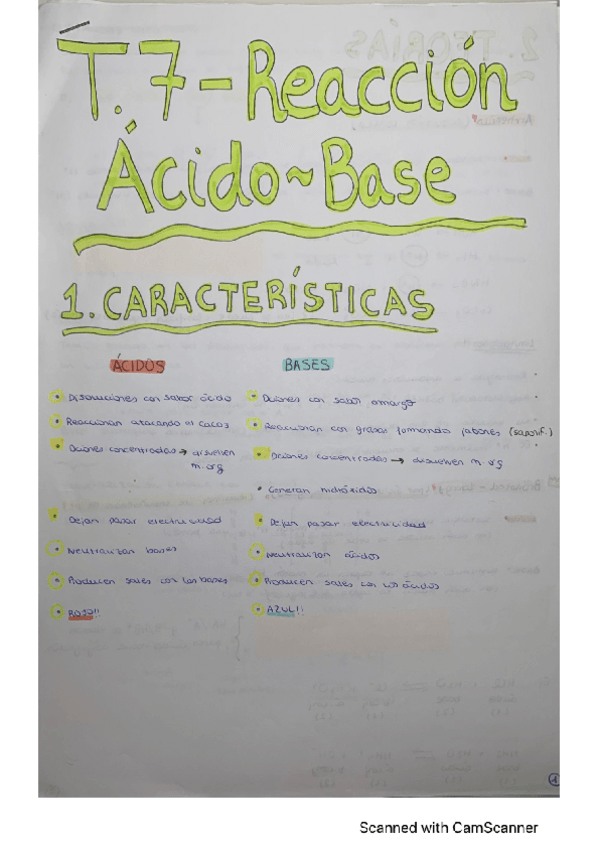 T.7-Reacción
Ácido~Base
1. CARACTERÍSTICAS
ÁCIDOS BASES
• Disoluciones con sabor ácido • Dciones con sabor amargo
• Reaccionan atacando al • Reaccionan con grasas formando jabones (saponif.)
• Dciones concentradas → disuelven • Dciones concentradas → disuelven m. org
m. org
• Generan hidróxidos
• Dejan pasar electricidad • Dejan pasar electricidad
• Neutralizan bases • Neutralizan ácidos
• Producen sales con las bases • Producen sales con los ácidos
• ROJO!! • AZUL!!
1
Scanned with CamScanner